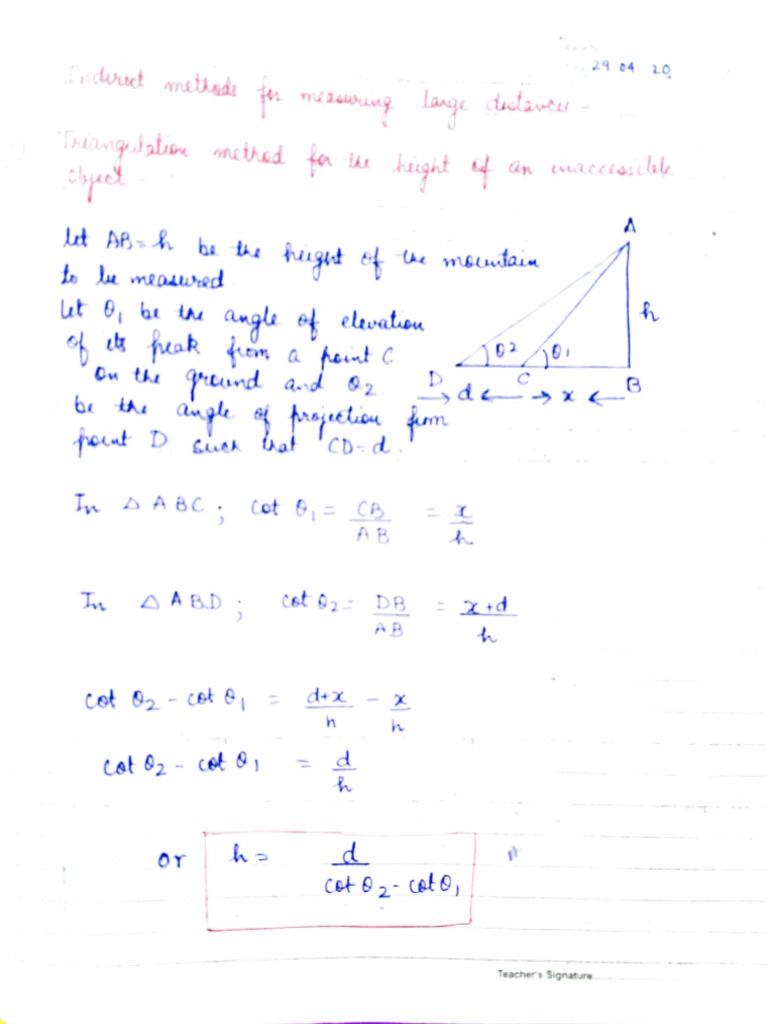 29 04 20
Indirect methods for measuring large distances -
Triangulation method for the height of an inaccessible
object -
A
let AB = h be the height of the mountain
to be measured.
h
Let θ1 be the angle of elevation
of its peak from a point C
θ2 θ1
on the ground and θ2
D C B
d x
be the angle of projection from
point D such that CD = d.
In △ ABC ; cot θ1 = CB/AB = x/h
In △ ABD ; cot θ2 = DB/AB = x+d/h
cot θ2 - cot θ1 = d+x/h - x/h
cot θ2 - cot θ1 = d/h
or h = d/cot θ2 - cot θ1
Teacher's Signature